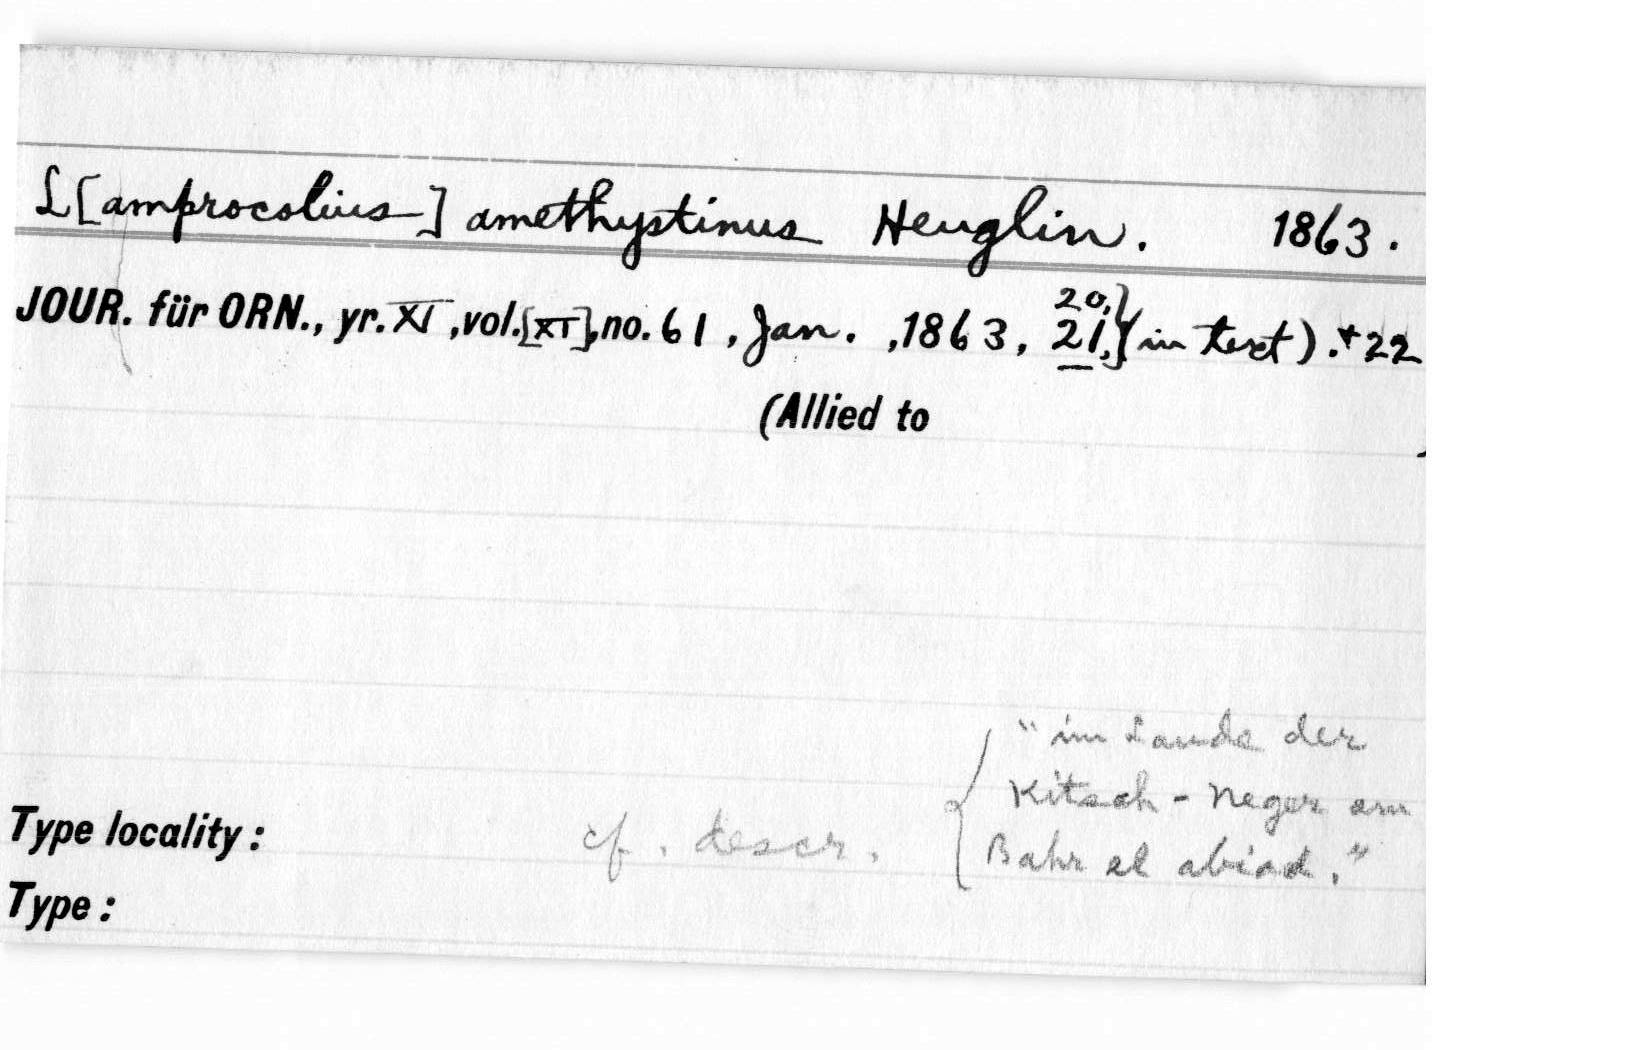 L[amprocolius] amethystinus Heuglin. 1863.
JOUR. für ORN., yr. XI, vol. [XI], no. 61, Jan. ,1863, 20, 21,} (in text). + 22
(Allied to )
"im Lande der
Kitsch-Neger am
Type locality: cf. descr. { Bahr el abiad."
Type: